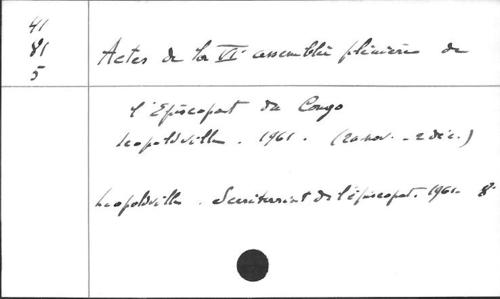 41
81
5
Actes de la VIe assemblée plénière de
l'Episcopat du Congo
Léopoldville. 1961. (20 nov. - 2 déc.)
Léopoldville. Secrétariat de l'épiscopat. 1961. 8°